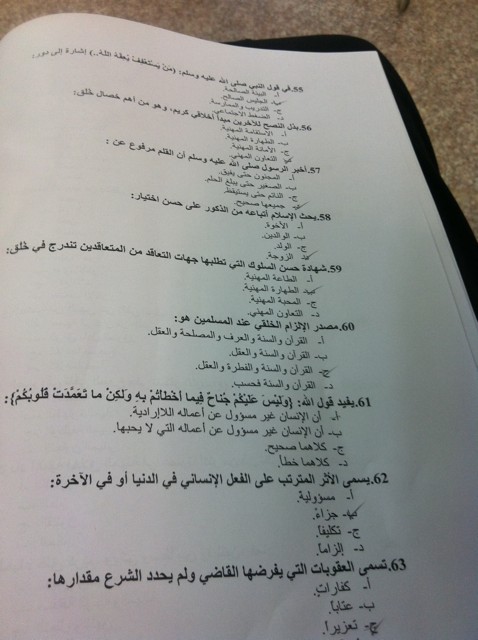 55.في قول النبي صلى الله عليه وسلم: (مَنْ يَسْتَعْفِفْ يُعِفَّهُ اللَّهُ..) إشارة إلى دور:
أ- البيئة الصالحة.
ب- الجليس الصالح.
ج- التدريب والممارسة.
د- الضغط الاجتماعي.
56.بذل النصح للآخرين مبدأ أخلاقي كريم، وهو من أهم خصال خلق:
أ- الاستقامة المهنية.
ب- الطهارة المهنية.
ج- الأمانة المهنية.
د- التعاون المهني.
57.أخبر الرسول صلى الله عليه وسلم أن القلم مرفوع عن :
أ- المجنون حتى يفيق.
ب- الصغير حتى يبلغ الحلم.
ج- النائم حتى يستيقظ.
د- جميعها صحيح.
58.يحث الإسلام أتباعه من الذكور على حسن اختيار:
أ- الأخوة.
ب- الوالدين.
ج- الولد.
د- الزوجة.
59.شهادة حسن السلوك التي تطلبها جهات التعاقد من المتعاقدين تندرج في خلق:
أ- الطاعة المهنية.
ب- الطهارة المهنية.
ج- المحبة المهنية.
د- التعاون المهني.
60.مصدر الإلزام الخلقي عند المسلمين هو:
أ- القرآن والسنة والعرف والمصلحة والعقل.
ب- القرآن والسنة والعقل.
ج- القرآن والسنة والفطرة والعقل.
د- القرآن والسنة فحسب.
61.يفيد قول الله: {وَلَيْسَ عَلَيْكُمْ جُنَاحٌ فِيمَا أَخْطَأْتُمْ بِهِ وَلَكِنْ مَا تَعَمَّدَتْ قُلُوبُكُمْ}:
أ- أن الإنسان غير مسؤول عن أعماله اللاإرادية.
ب- أن الإنسان غير مسؤول عن أعماله التي لا يحبها.
ج- كلاهما صحيح.
د- كلاهما خطأ.
62.يسمى الأثر المترتب على الفعل الإنساني في الدنيا أو في الآخرة:
أ- مسؤولية.
ب- جزاءً.
ج- تكليفاً.
د- إلزاماً.
63.تسمى العقوبات التي يفرضها القاضي ولم يحدد الشرع مقدارها:
أ- كفارات.
ب- عتاباً.
ج- تعزيراً.